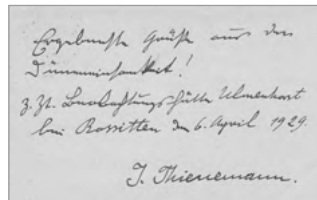 Ergebenste Grüße aus der
Düneneinsamkeit!
z. Zt. Beobachtungshütte Ulmenhorst
bei Rossitten den 6. April 1929.
J. Thienemann.